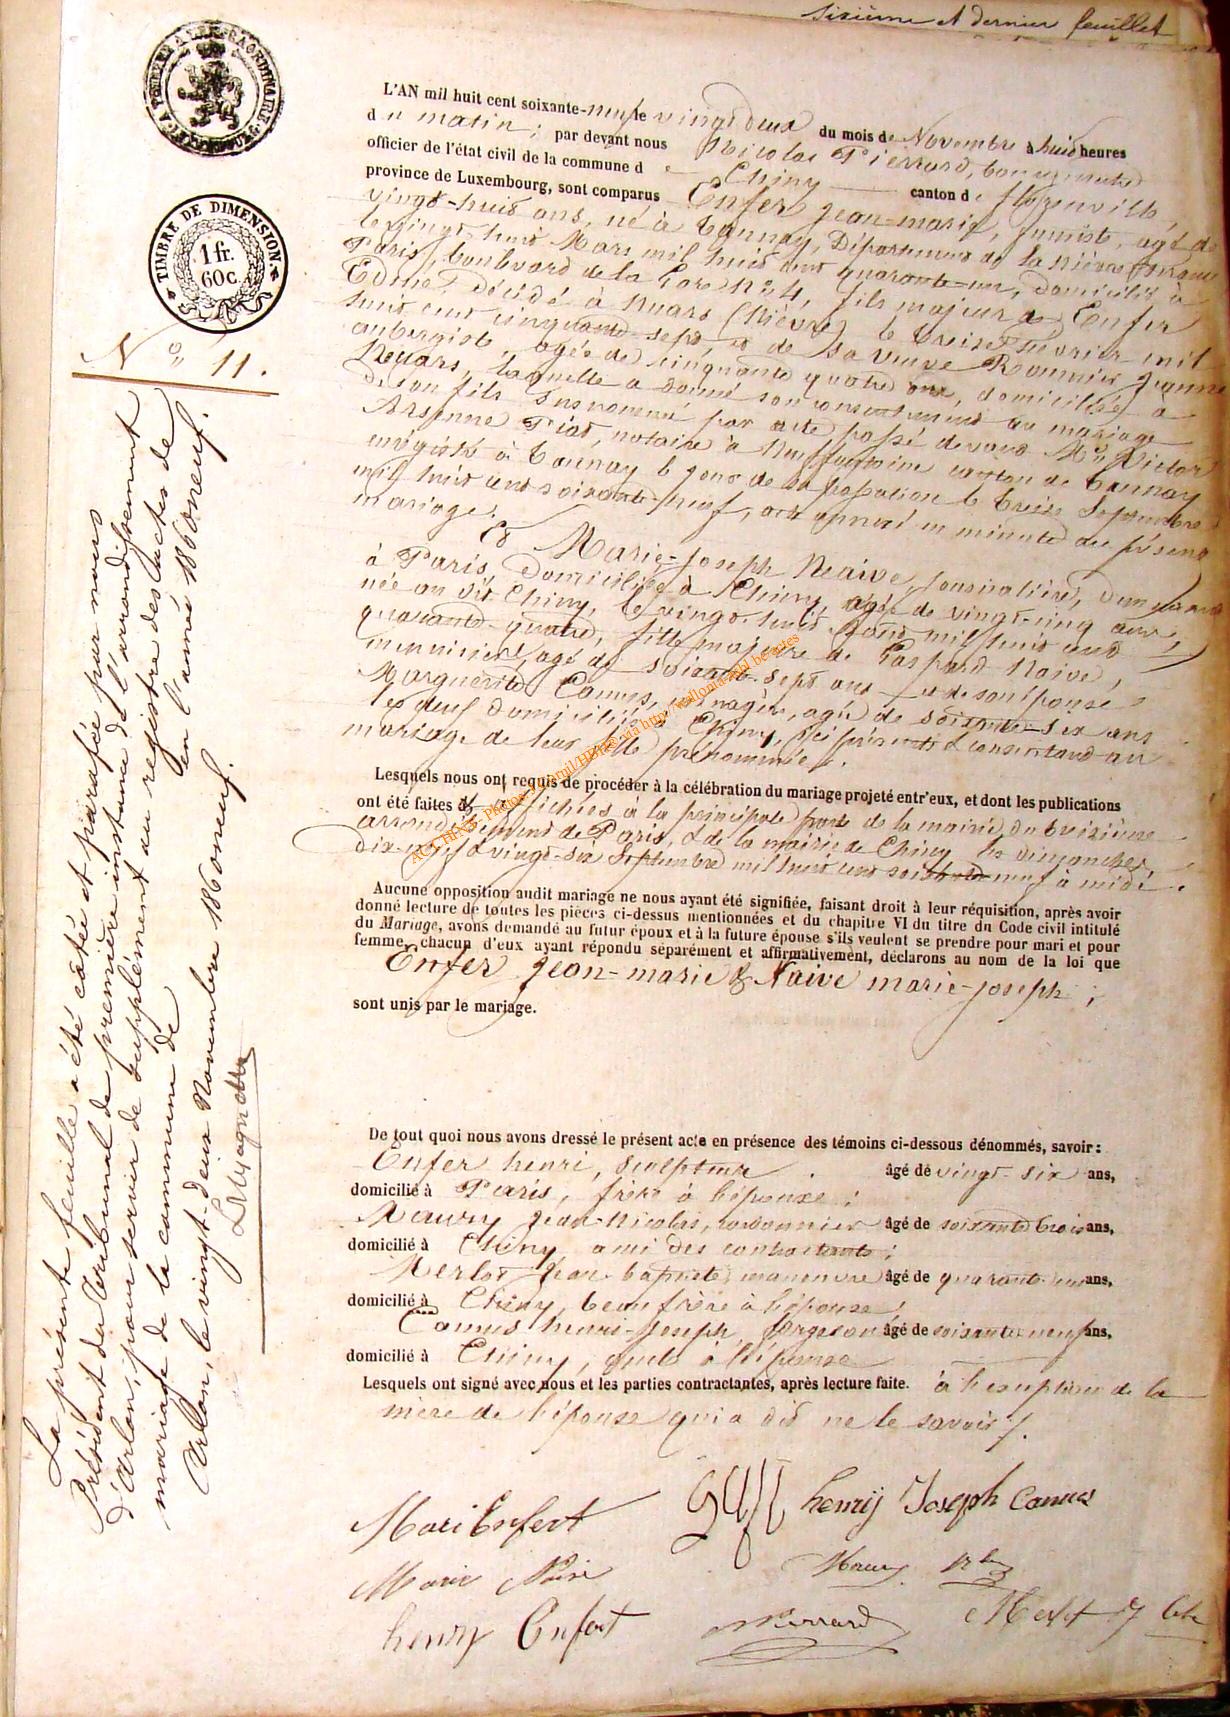 Sixième et dernier feuillet
TIMBRE DE DIMENSION
1 fr.
60 c.
N° 11.
La présente feuille a été côtée et parafée par nous
Président du Tribunal de première instance de l'arrondissement
d'Arlon, pour servir de supplément au registre des actes de
mariage de la commune de en l'année 1860neuf.
Arlon, le vingt-deux Novembre 1860neuf.
L'AN mil huit cent soixante-neuf le vingt deux du mois de Novembre à huit heures
du matin; par devant nous Nicolas Pierrard, bourgmestre
officier de l'état civil de la commune de Chiny canton de Florenville,
province de Luxembourg, sont comparus Enfer jean-marie, agé de
vingt-huit ans, né à Tannay, Département de la Nièvre
le vingt-huit Mars mil huit cent quarante-un, domicilié à
Paris, boulevard de la Gare N° 4, fils majeur de Enfer
Edme, décédé à Nuars (Nièvre) le treize Février mil
huit cent cinquante-sept, et de sa veuve Rounnier jeanne
aubergiste, agée de cinquante quatre ans, domiciliée à
Nuars, laquelle a donné son consentement au mariage
de son fils susnommé par acte passé devant Me Victor
Arsenne Piat, notaire à Neuffontaine canton de Tannay
enrégistré à Tannay le jour de sa passation le treize Septembre
mil huit cent soixante-neuf, annexé en minute au présent
mariage.
Et Marie-Joseph Naive, journalière,
à Paris, domiciliée à Chiny, agée de vingt-cinq ans,
née au dit Chiny, le vingt-huit mil huit cent
quarante-quatre, fille majeure de Gaspard Naive,
menuisier, agé de soixante-sept ans et de son épouse
Marguerite Camus, ménagère, agée de soixante-six ans
les deux domiciliés à Chiny, ici présents et consentant au
mariage de leur fille prénommée.
Lesquels nous ont requis de procéder à la célébration du mariage projeté entr'eux, et dont les publications
ont été faites et affichées à la principale porte de la mairie du treizième
arrondissement de Paris, et de la mairie de Chiny les dimanches
dix-neuf et vingt-six Septembre mil huit cent soixante-neuf à midi.
Aucune opposition audit mariage ne nous ayant été signifiée, faisant droit à leur réquisition, après avoir
donné lecture de toutes les pièces ci-dessus mentionnées et du chapitre VI du titre du Code civil intitulé
du Mariage, avons demandé au futur époux et à la future épouse s'ils veulent se prendre pour mari et pour
femme, chacun d'eux ayant répondu séparément et affirmativement, déclarons au nom de la loi que
Enfer jean-marie & Naive marie-joseph;
sont unis par le mariage.
De tout quoi nous avons dressé le présent acte en présence des témoins ci-dessous dénommés, savoir:
Enfer henri, sculpteur. âgé de vingt-six ans,
domicilié à Paris, frère à l'époux;
Maury jean-nicolas, cordonnier âgé de soixante trois ans,
domicilié à Chiny, ami des contractants;
Merlot jean-baptiste, manoeuvre âgé de quarante ans,
domicilié à Chiny, beau frère à l'épouse;
Camus henri-joseph, forgeron âgé de soixante-neuf ans,
domicilié à Chiny, oncle à l'épouse
Lesquels ont signé avec nous et les parties contractantes, après lecture faite. à l'exception de la
mère de l'épouse qui a dit ne le savoir.
Mari Enfert
henrij Joseph Camus
Marie Naive
Maury
henry Enfert
Pierrard
Merlot J Bte
ACCHINY - Photos via http://wallonia-bhl.be/actes